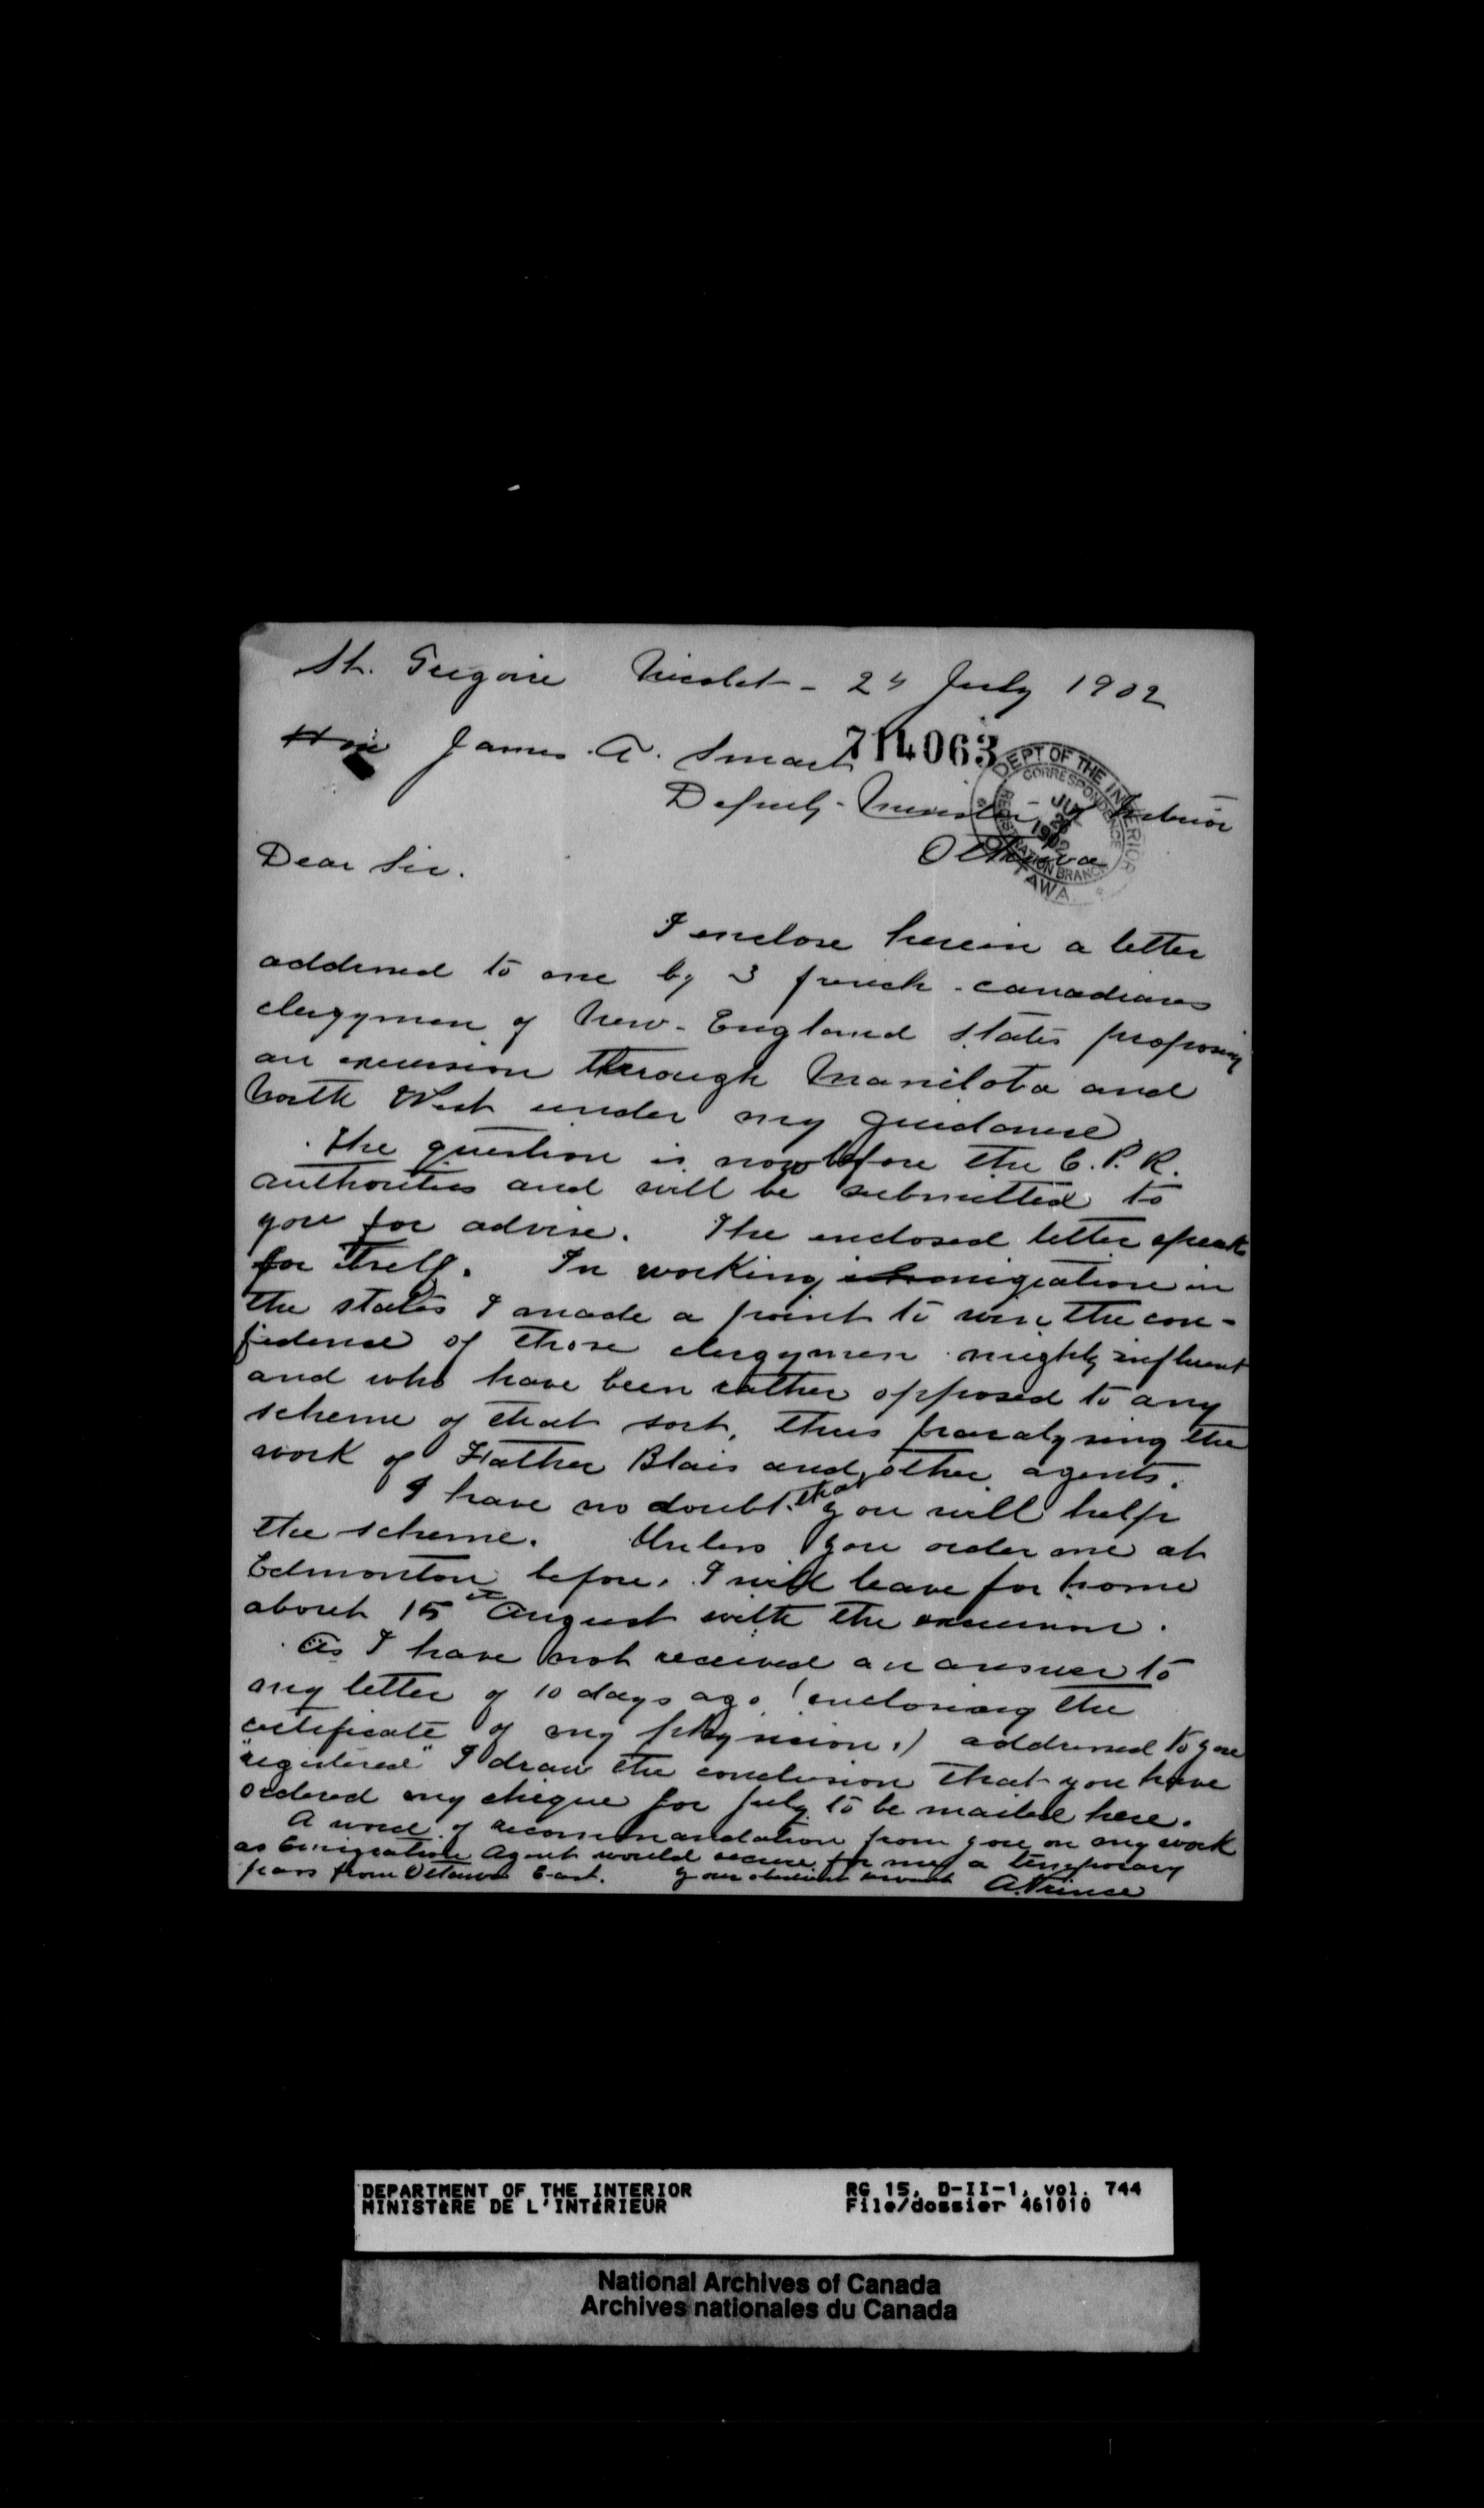 St. Gregoire Nicolet - 24 July 1902
Hon James A. Smart
714063
Deputy-Minister of Interior
Ottawa
DEPT OF THE INTERIOR
CORRESPONDENCE
JUL
1902
REGISTRATION BRANCH
OTTAWA
Dear Sir.
I enclose herein a letter
addressed to me by 3 french-canadians
clergymen of New-England states proposing
an excursion through Manitoba and
North West under my guidance
The question is now before the C.P.R.
authorities and will be submitted to
you for advise. The enclosed letter speaks
for itself. In working migration in
the states I made a point to win the con-
fidence of those clergymen mighty influent
and who have been rather opposed to any
scheme of that sort, thus paralysing the
work of Father Blais and other agents.
I have no doubt that you will help
the scheme. Unless you order me at
Edmonton before, I will leave for home
about 15th August with the excursion.
As I have not received an answer to
my letter of 10 days ago (enclosing the
certificate of my physicion,) addressed to you
"registered" I draw the conclusion that you have
ordered my cheque for July to be mailed here.
A word of recommandation from you on my work
as Emigration Agent would secure for me a temporary
pass from Ottawa East. Your obedient servant A. Prince
DEPARTMENT OF THE INTERIOR
MINISTÈRE DE L'INTÉRIEUR
RG 15, D-II-1, vol. 744
File/dossier 461010
National Archives of Canada
Archives nationales du Canada